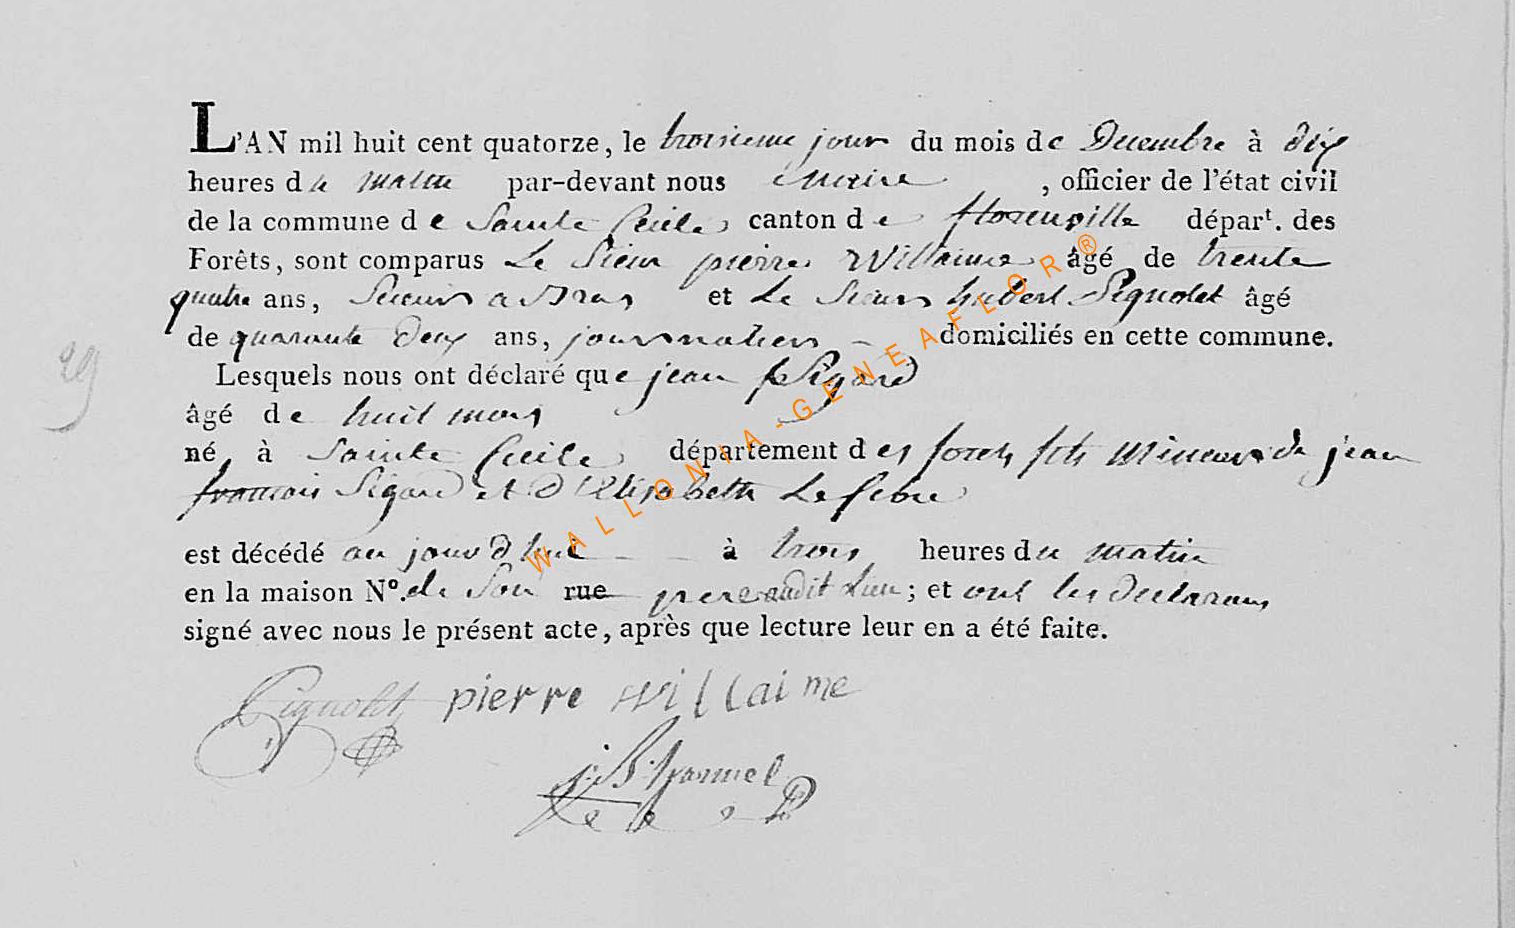 L'AN mil huit cent quatorze, le troisieme jour du mois de Decembre à dix
heures du matin par-devant nous maire, officier de l'état civil
de la commune de Sainte Cecile canton de florenvilleépart. des
Forêts, sont comparus Le Sieur pierre Willaime âgé de trente
quatre ans, Scieur a Bras et Le Sieur hubert Pignolet âgé
de quarante deux ans, journalier - domiciliés en cette commune.
Lesquels nous ont déclaré que jean Sigard
âgé de huit mois
né, à Sainte Cecile département des forets fils mineur de jean
francois Sigard et d'Elisabeth Lefebre
est décédé au jourd'hui à trois heures du matin
en la maison N°. de Son rue pere audit Lieu; et ont les declarans
signé avec nous le présent acte, après que lecture leur en a été faite.
29
Pignolet pierre willaime
j:B: hannel
WALLONIA-GENEAFLOR®